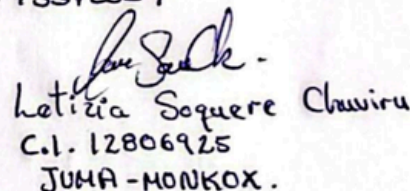 Letizia Soquere Chuviru
C.I. 12806925
JUMA-MONKOX.